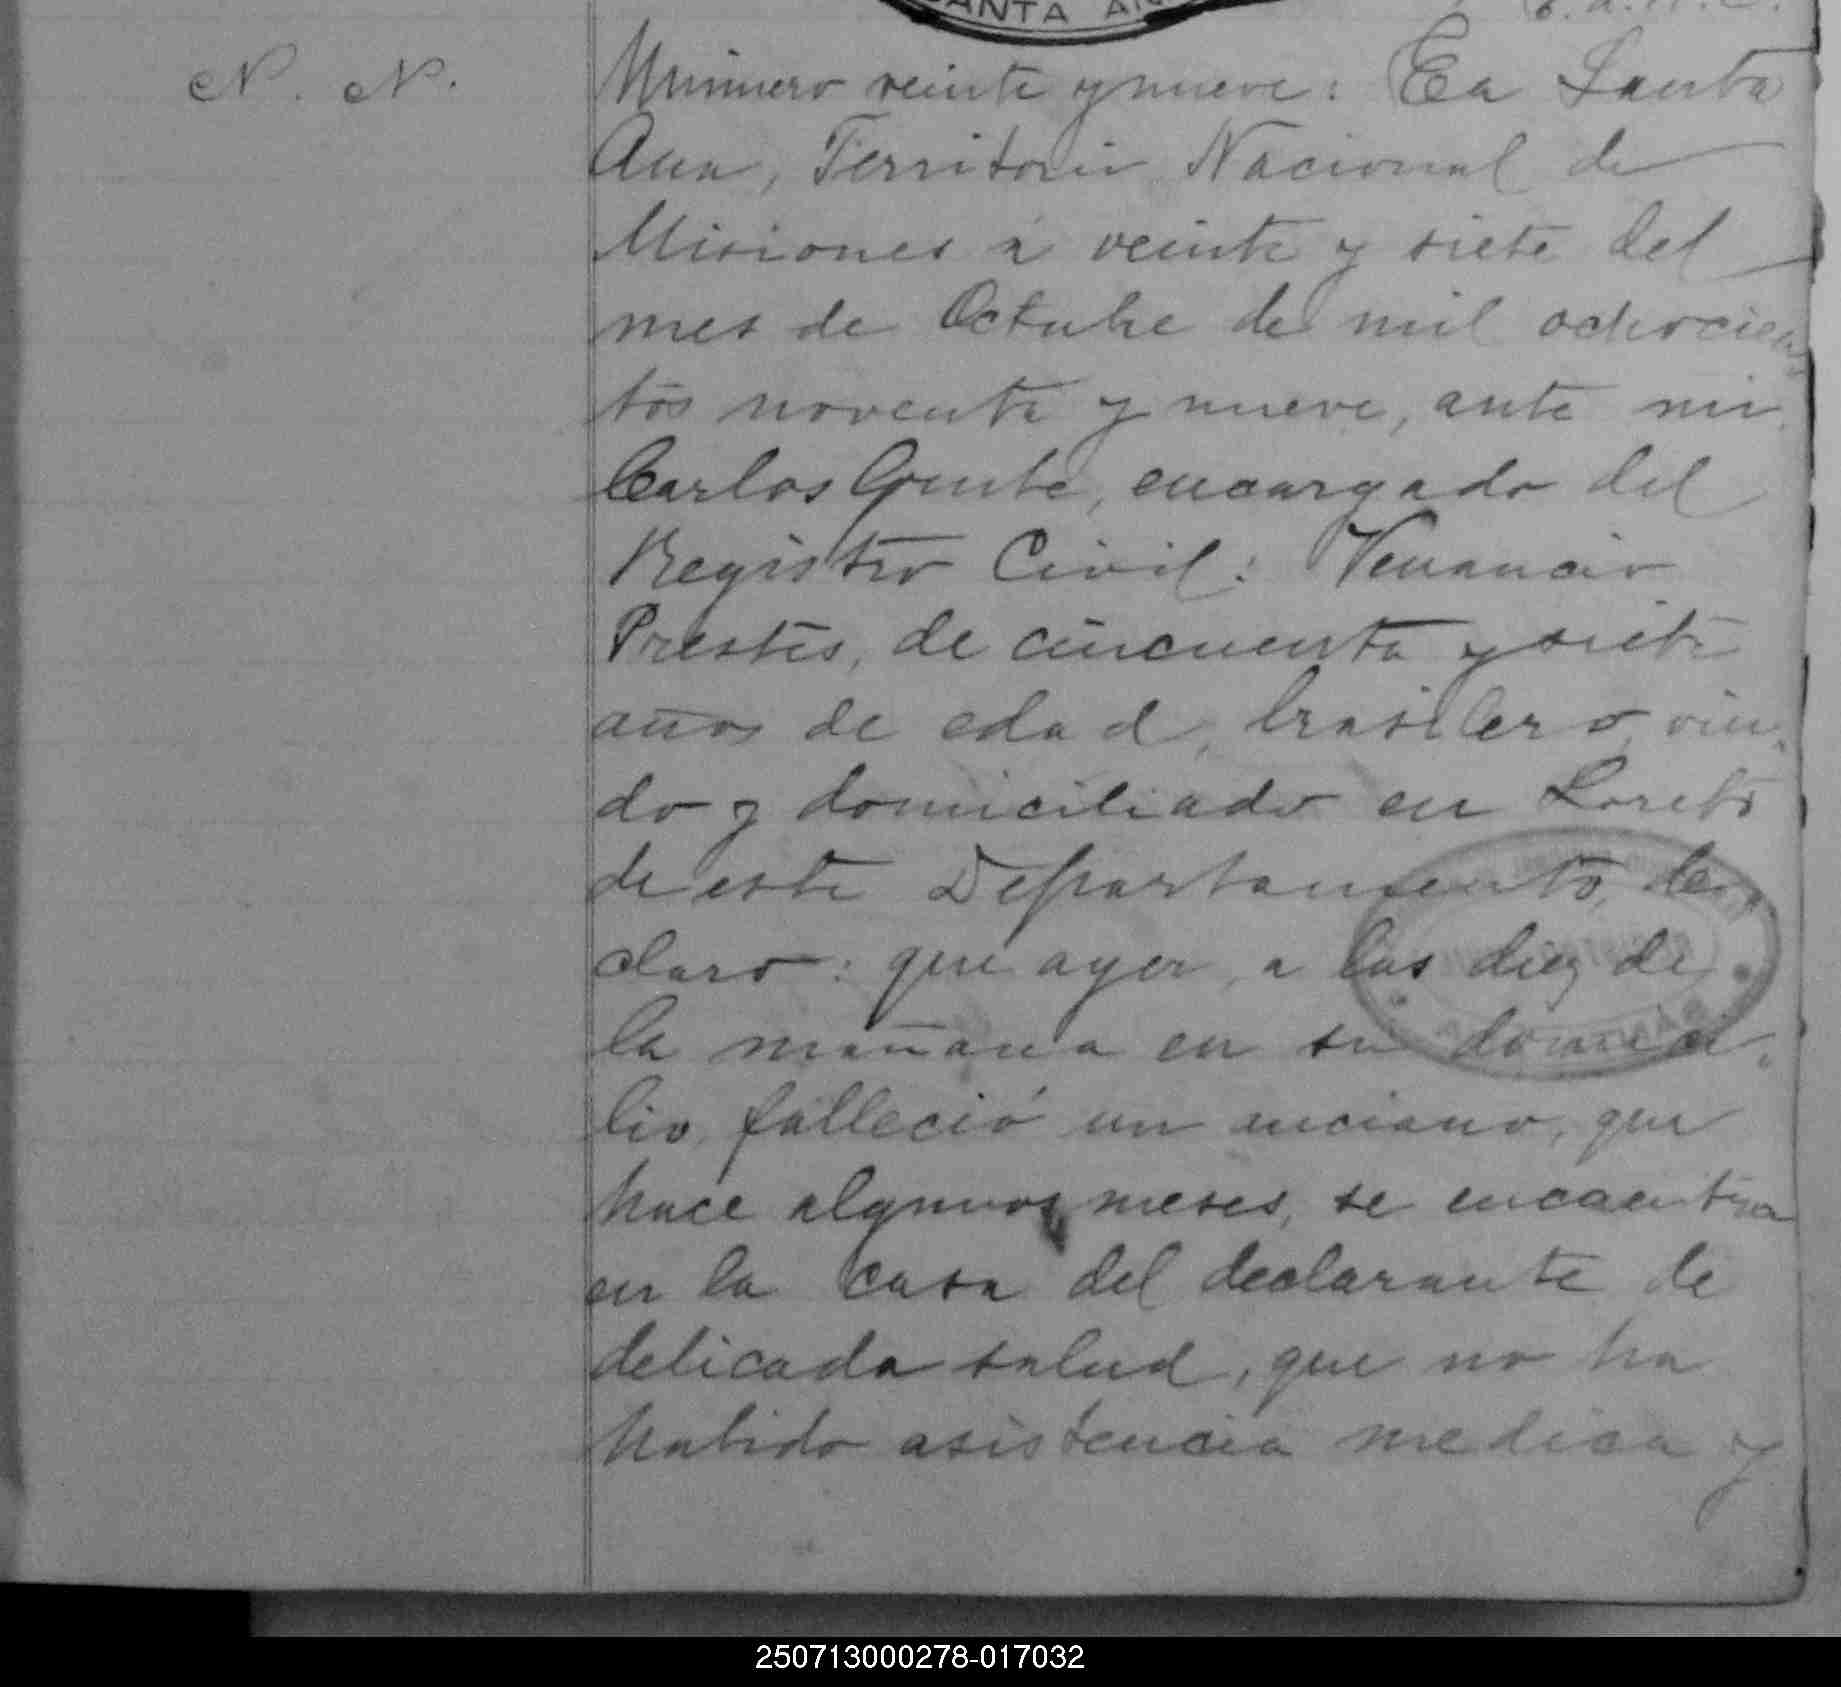 SANTA AN
N. N.
Número veinte y nueve: En Santa
Ana, Territorio Nacional de
Misiones á veinte y siete del
mes de Octubre de mil ochocien
tos noventa y nueve, ante mi
Carlos encargado del
Registro Civil: Venancio
Prestes, de cincuenta y siete
años de edad, brasilero, viu-
do y domiciliado en Loreto
de este Departamento, de-
claro: que ayer, a las diez de
la mañana en su domici-
lio, falleció un anciano, que
hace algunos meses, se encuentra
en la casa del declarante de
delicada salud, que no ha
habido asistencia medica y
250713000278-017032